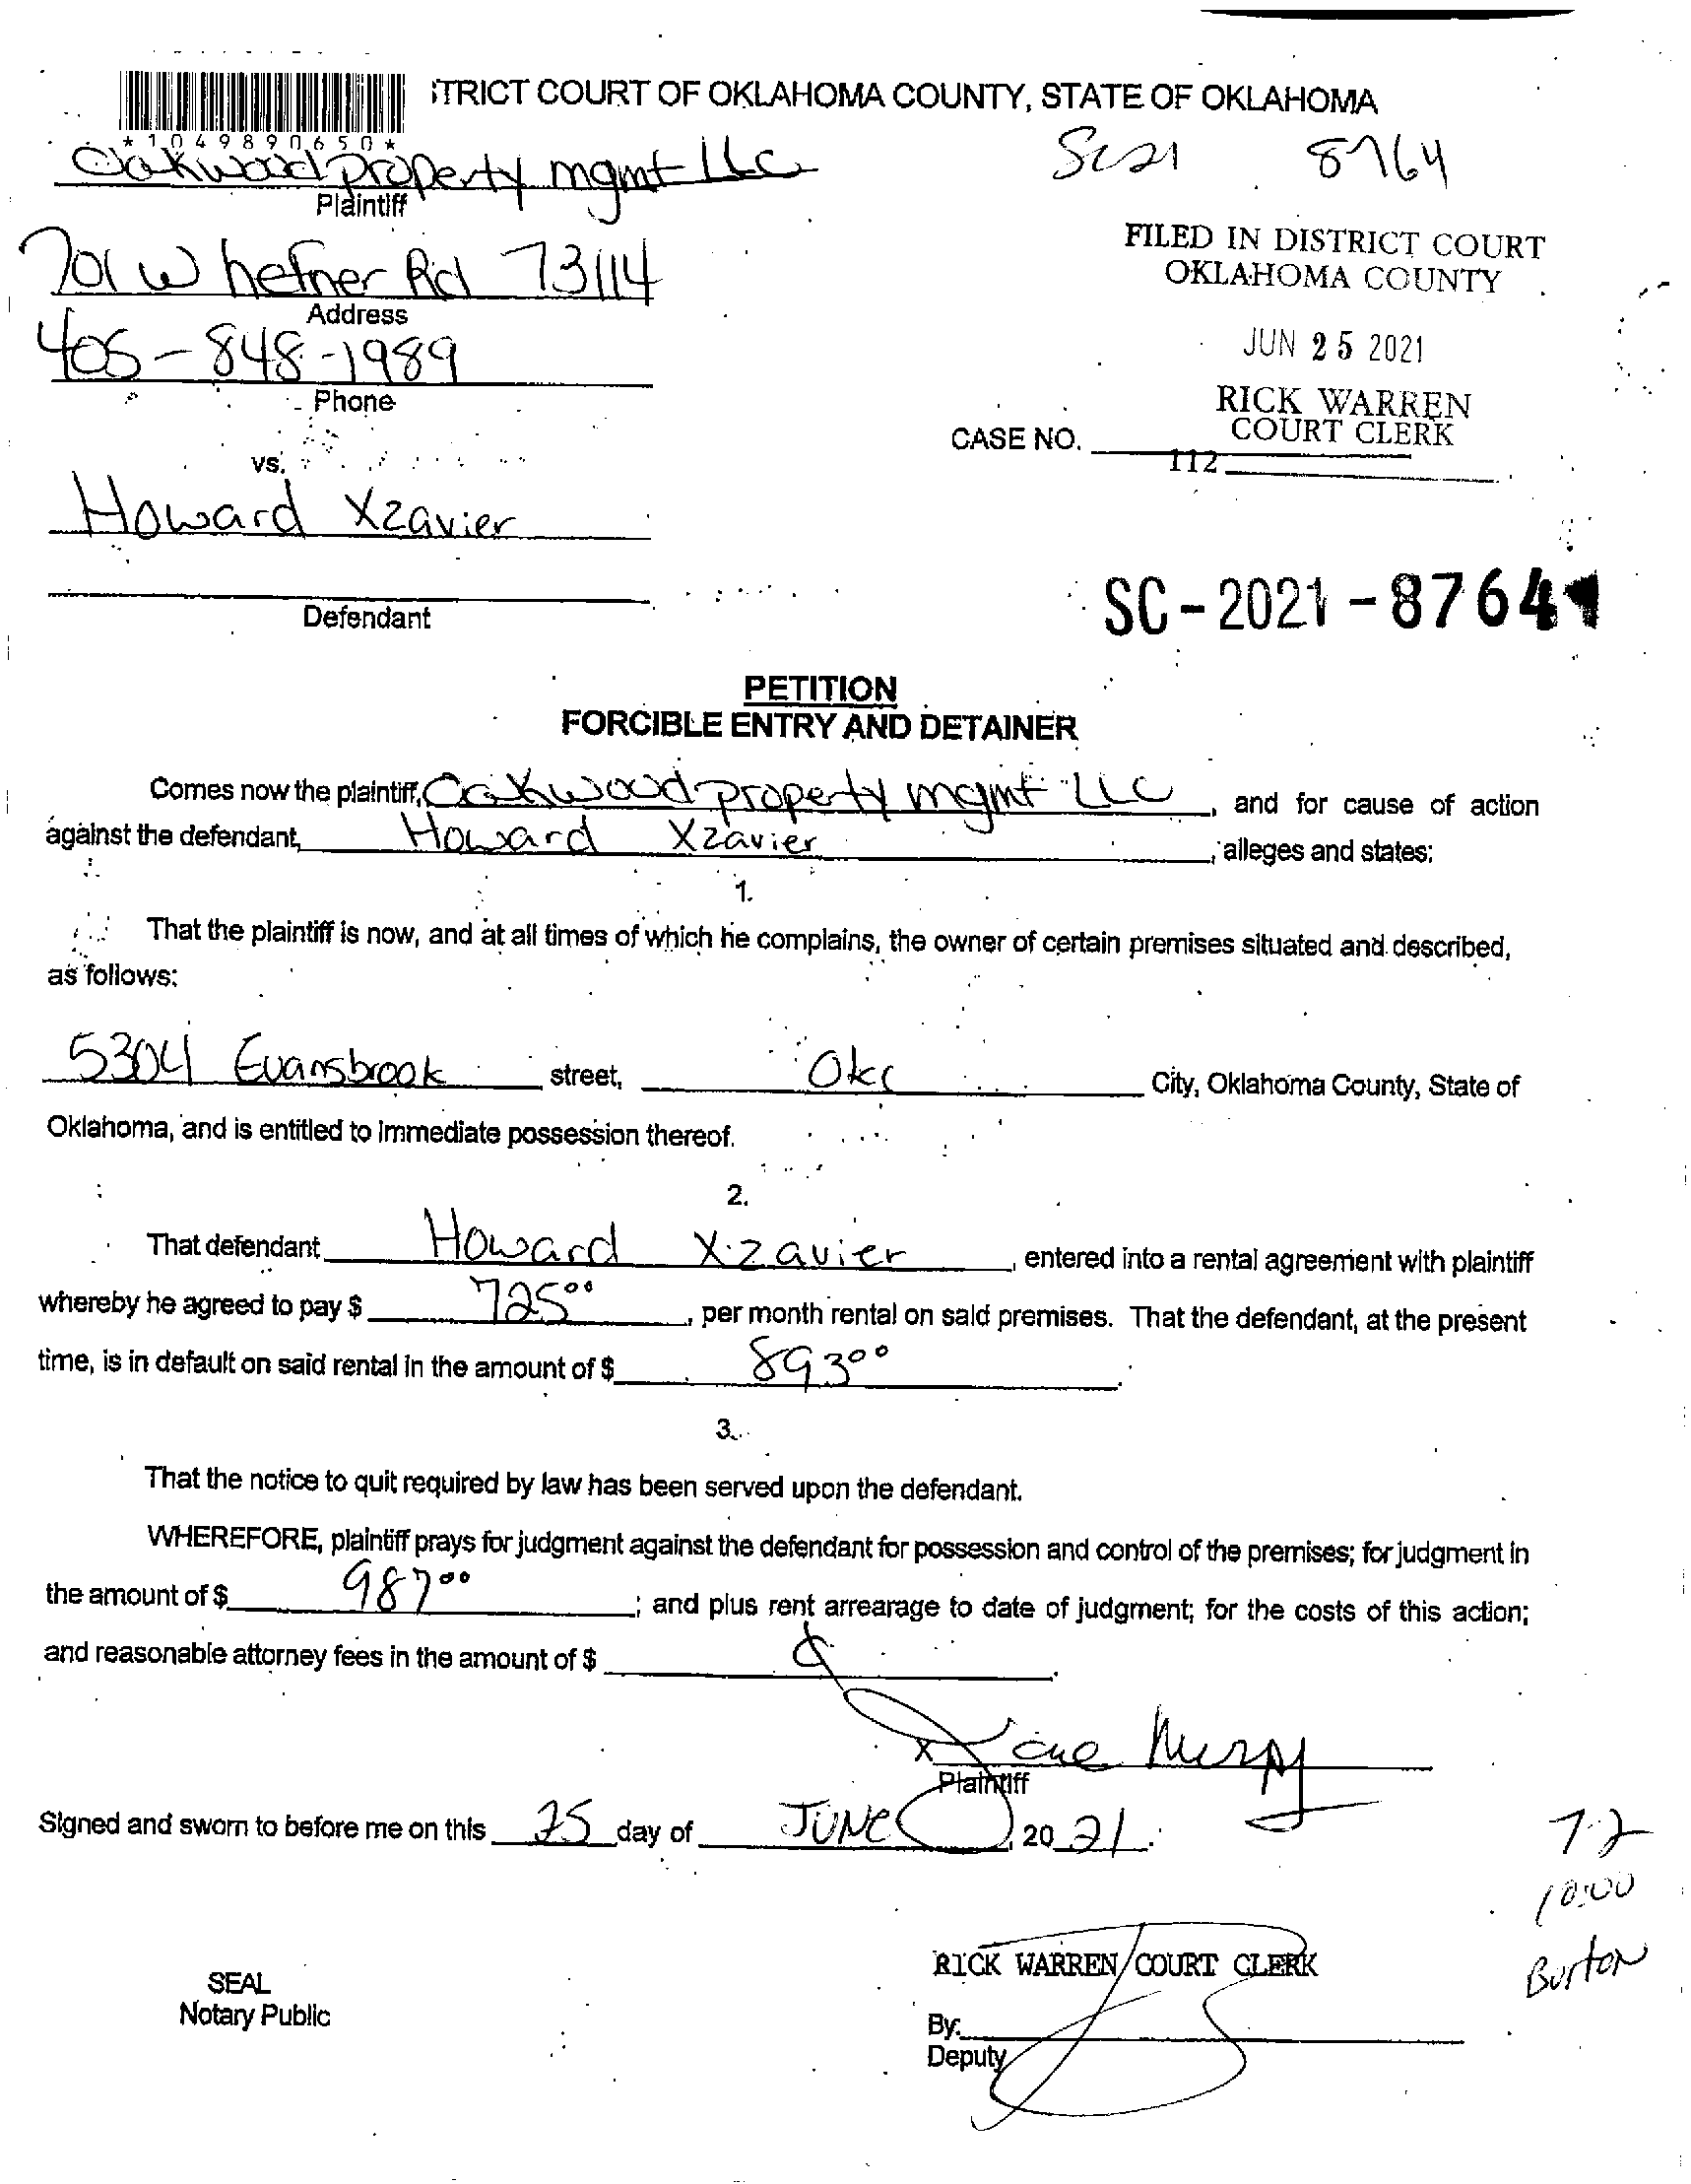 ITRICT COURT OF OKLAHOMA COUNTY, STATE OF OKLAHOMA
*1049890650*
Oakwood property mgmt LLC
SC21 8764
Plaintiff
FILED IN DISTRICT COURT
OKLAHOMA COUNTY
701 W hefner Rd 73114
Address
JUN 25 2021
405-848-1989
Phone
RICK WARREN
COURT CLERK
CASE NO.
112
vs.
Howard Xzavier
Defendant
SC-2021-8764
PETITION
FORCIBLE ENTRY AND DETAINER
Comes now the plaintiff, Oakwood property mgmt LLC, and for cause of action
against the defendant, Howard Xzavier, alleges and states:
1.
That the plaintiff is now, and at all times of which he complains, the owner of certain premises situated and described,
as follows:
5304 Evansbrook street, Okc City, Oklahoma County, State of
Oklahoma, and is entitled to immediate possession thereof.
2.
That defendant Howard Xzavier, entered into a rental agreement with plaintiff
whereby he agreed to pay $ 725.00, per month rental on said premises. That the defendant, at the present
time, is in default on said rental in the amount of $ 893.00.
3.
That the notice to quit required by law has been served upon the defendant.
WHEREFORE, plaintiff prays for judgment against the defendant for possession and control of the premises; for judgment in
the amount of $ 987.00; and plus rent arrearage to date of judgment; for the costs of this action;
and reasonable attorney fees in the amount of $
x
Plaintiff
Signed and sworn to before me on this 25 day of JUNE, 2021.
7-2
10:00
Burton
RICK WARREN COURT CLERK
SEAL
Notary Public
By:
Deputy